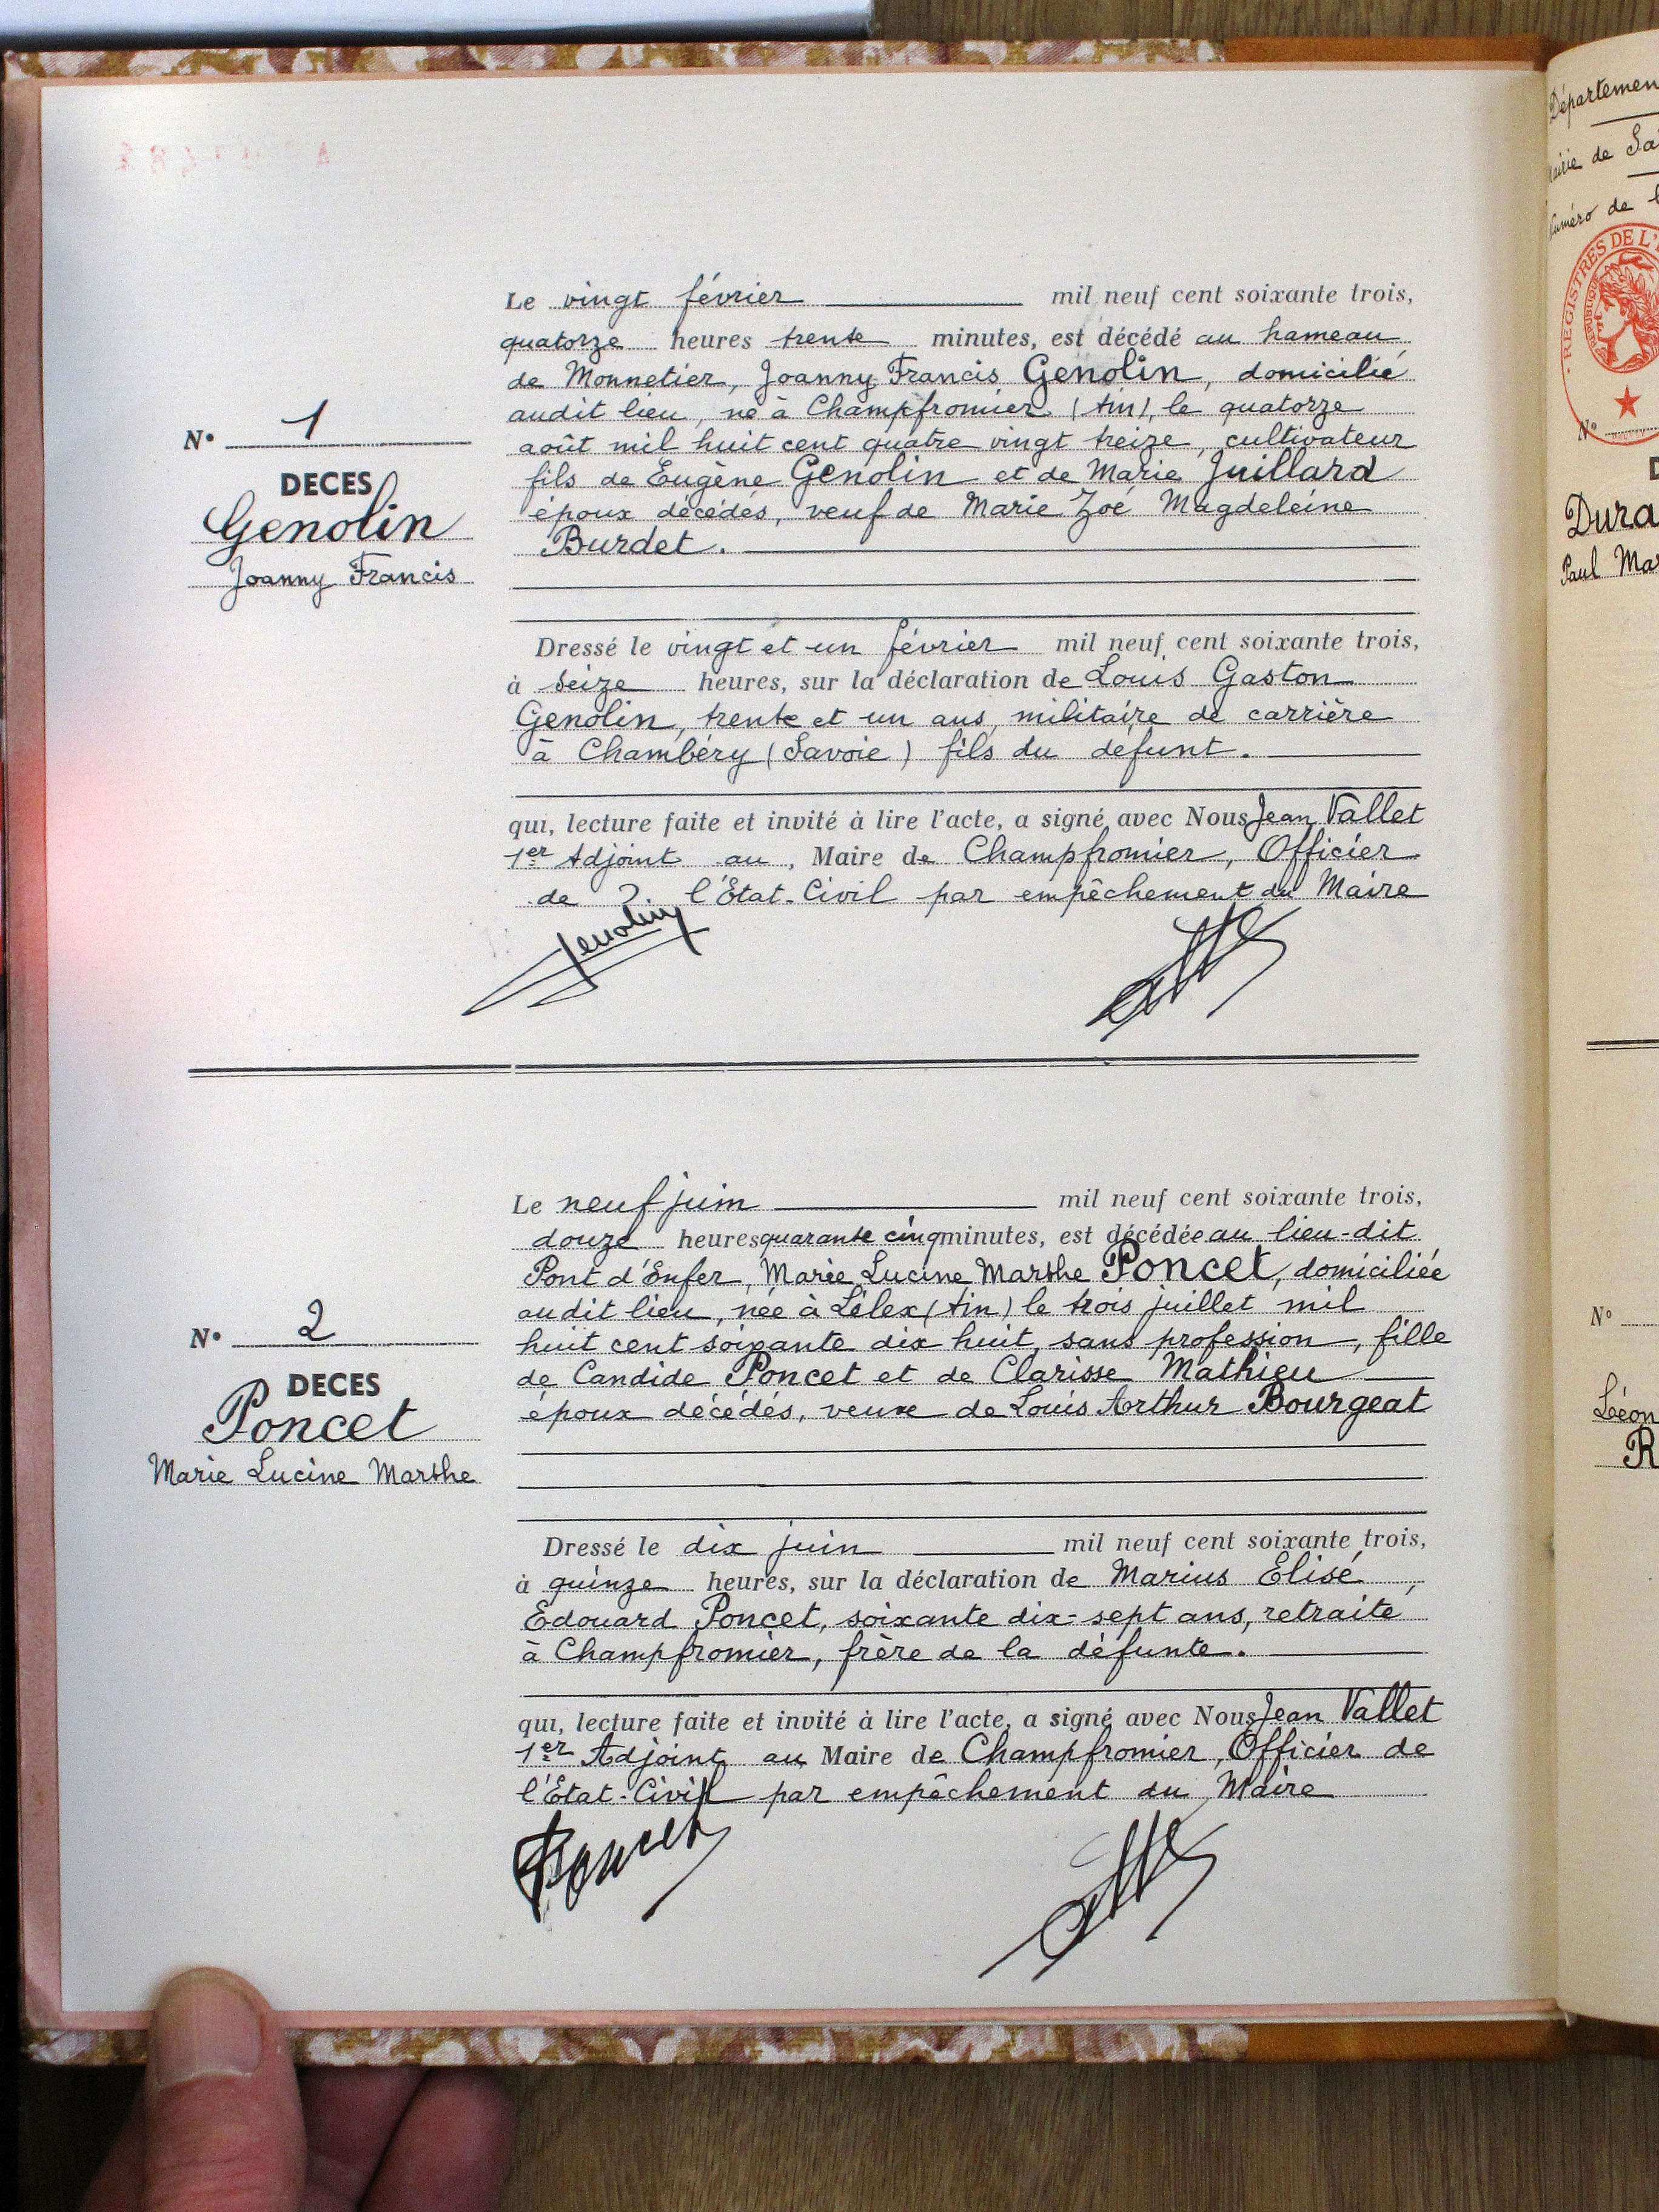 Le vingt février mil neuf cent soixante trois,
quatorze heures trente minutes, est décédé au hameau
de Monnetier, Joanny Francis Genolin, domicilié
audit lieu, né à Champfromier (Ain), le quatorze
août mil huit cent quatre vingt treize, cultivateur
fils de Eugène Genolin et de Marie Juillard
époux décédés, veuf de Marie Zoé Magdeleine
Burdet.
N° 1
DECES
Genolin
Joanny Francis
Dressé le vingt et un février mil neuf cent soixante trois,
à seize heures, sur la déclaration de Louis Gaston
Genolin, trente et un ans, militaire de carrière
à Chambéry (Savoie) fils du defunt.
qui, lecture faite et invité à lire l'acte, a signé avec Nous Jean Vallet
1er Adjoint au, Maire de Champfromier, Officier
de l'Etat-Civil par empêchement du Maire
Genolin
Le neuf juin mil neuf cent soixante trois,
douze heures quarante cinq minutes, est décédée au lieu-dit
Pont d'Enfer, Marie Lucine Marthe Poncet, domiciliée
audit lieu, née à Lélex (Ain) le trois juillet mil
huit cent soixante dix huit, sans profession, fille
de Candide Poncet et de Clarisse Mathieu
époux décédés, veuve de Louis Arthur Bourgeat
N° 2
DECES
Poncet
Marie Lucine Marthe
Dressé le dix juin mil neuf cent soixante trois,
à quinze heures, sur la déclaration de Marius Elisé,
Edouard Poncet, soixante dix-sept ans, retraité
à Champfromier, frère de la défunte.
qui, lecture faite et invité à lire l'acte, a signé avec Nous Jean Vallet
1er Adjoint au Maire de Champfromier, Officier de
l'Etat-Civil par empêchement du Maire
Poncet
Département
Mairie de Sa
Numéro de
REGISTRES DE L'
N°
D
Dura
Paul Mar
N°
Léon
R